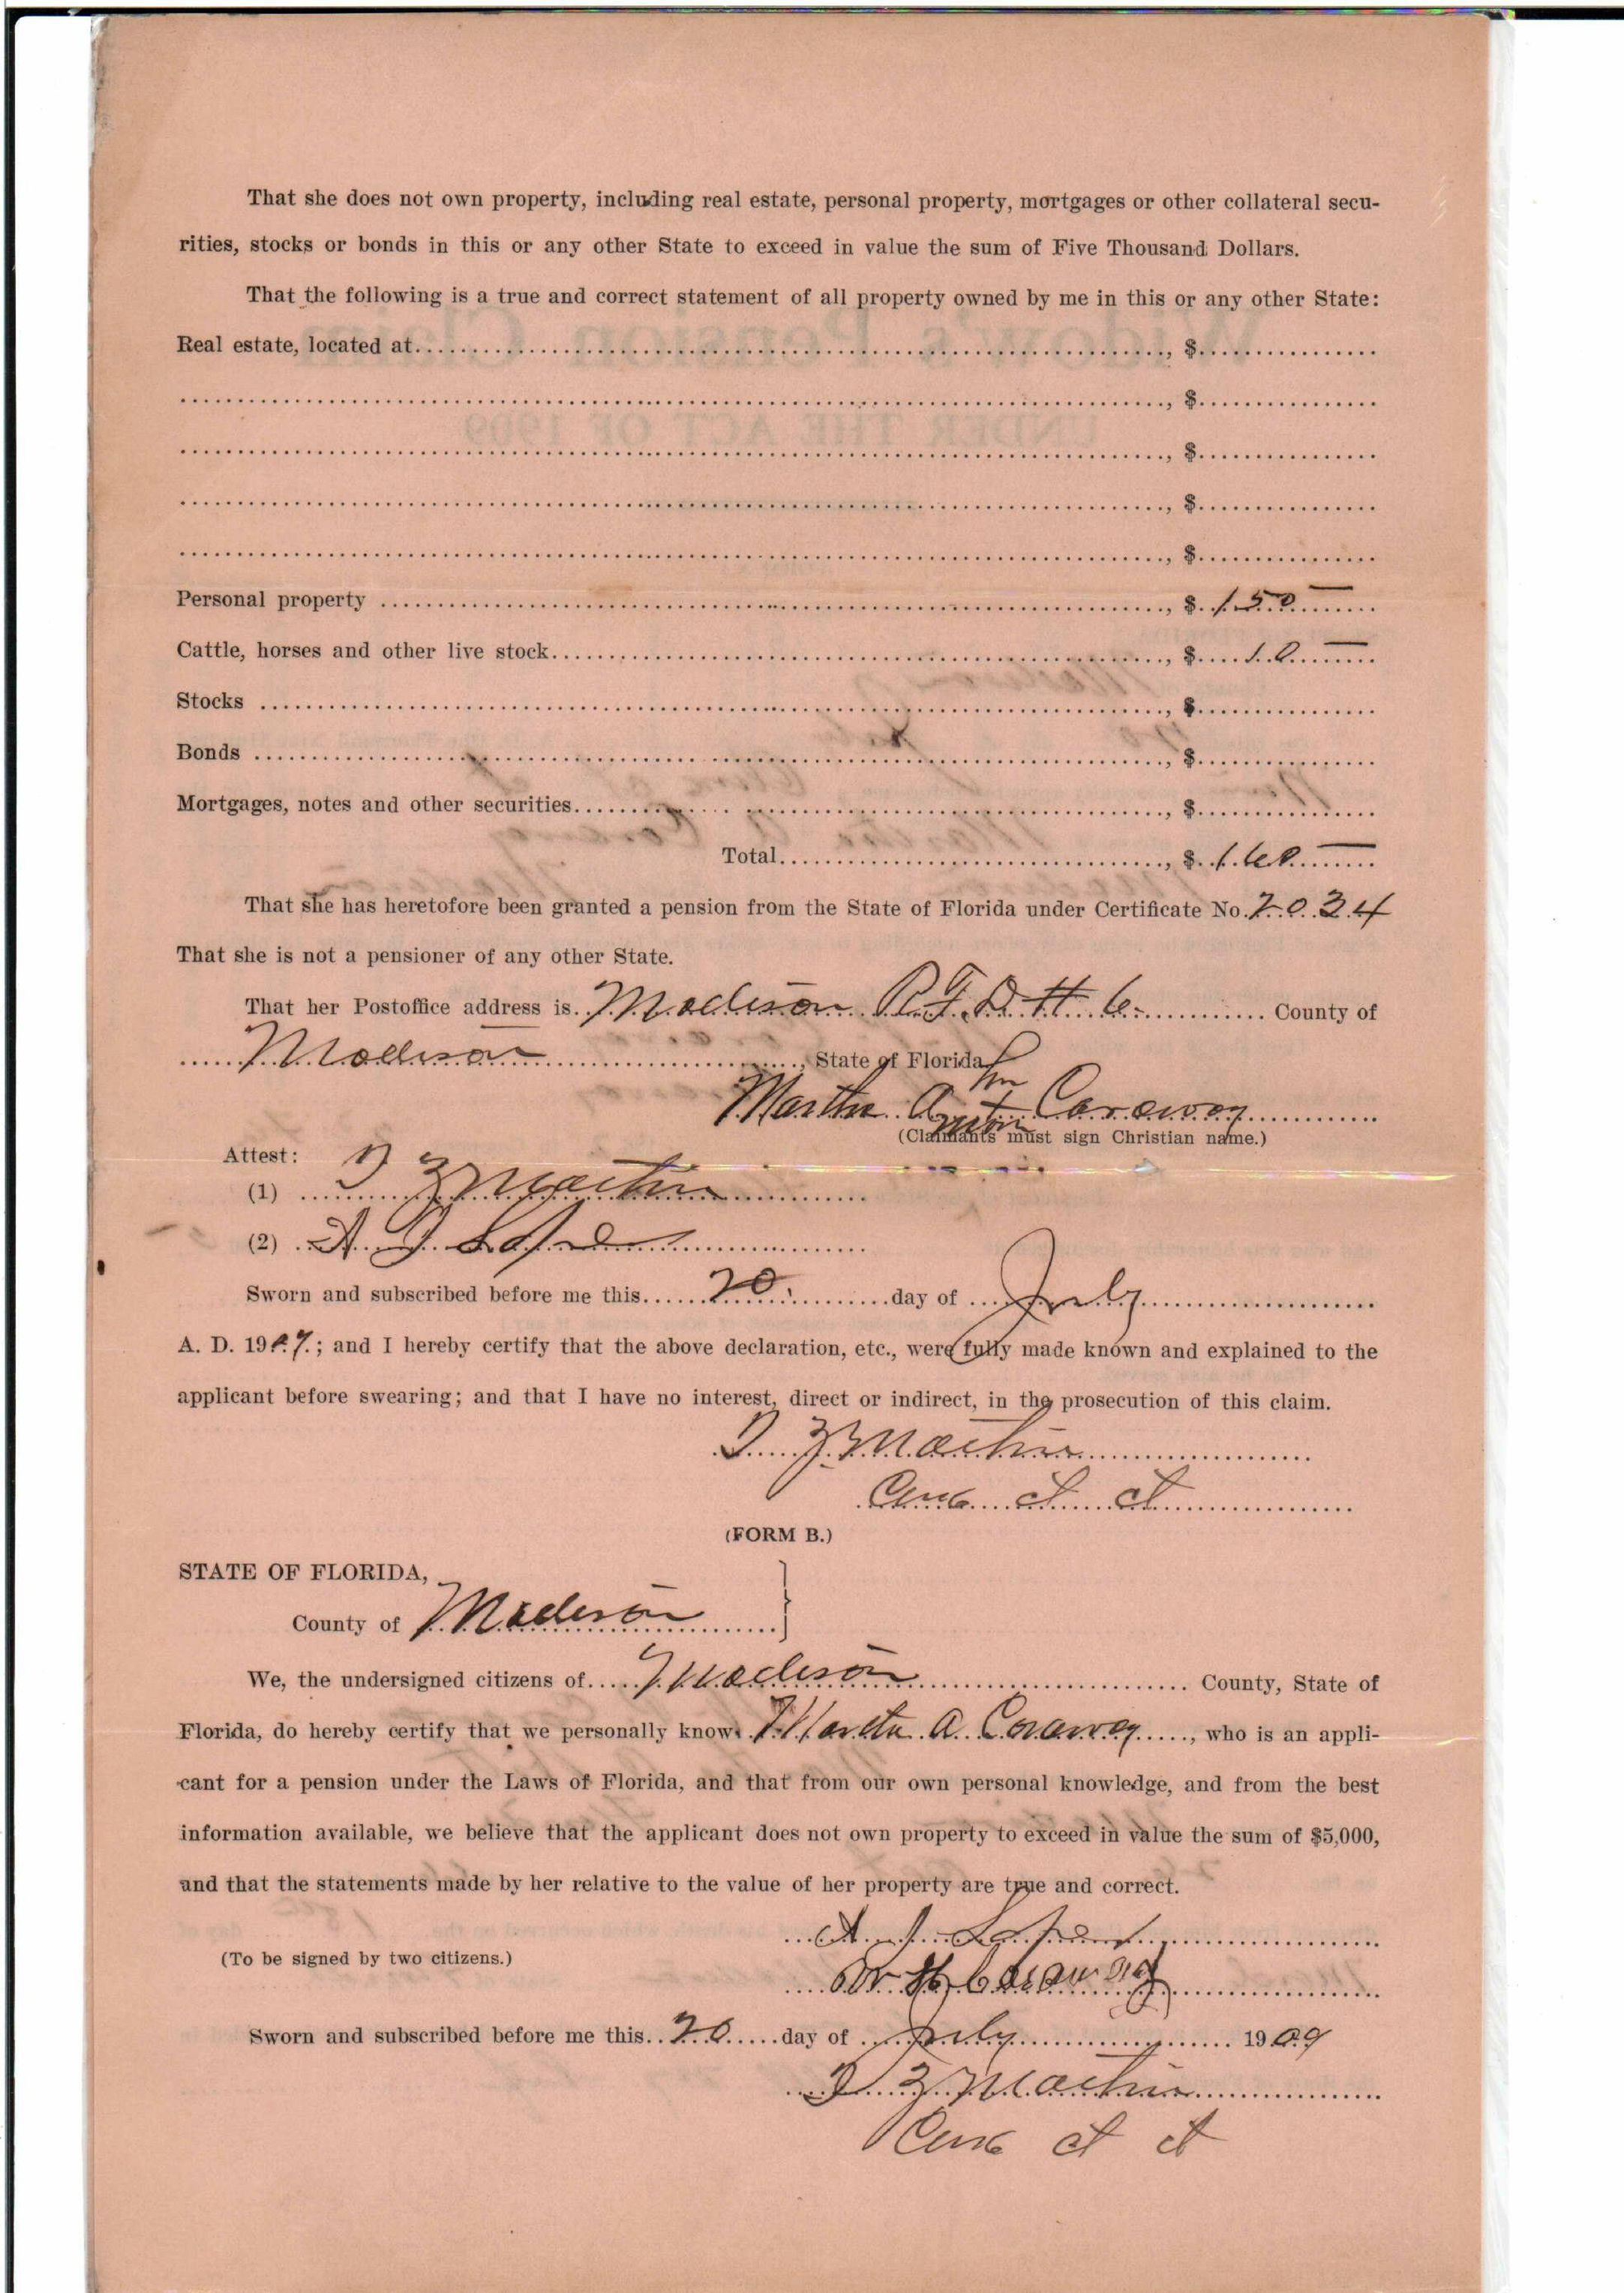 That she does not own property, including real estate, personal property, mortgages or other collateral secu-
rities, stocks or bonds in this or any other State to exceed in value the sum of Five Thousand Dollars.
That the following is a true and correct statement of all property owned by me in this or any other State:
Real estate, located at, $
, $
, $
, $
, $
Personal property, $ 150
Cattle, horses and other live stock, $ 10
Stocks, $
Bonds, $
Mortgages, notes and other securities, $
Total, $ 160
That she has heretofore been granted a pension from the State of Florida under Certificate No. 2034
That she is not a pensioner of any other State.
That her Postoffice address is Madison R.F.D. # 6 County of
Madison, State of Florida
Martha A Caraway
(Claimants must sign Christian name.)
Attest:
(1) Martin
(2) A J
Sworn and subscribed before me this 20 day of July
A. D. 1909; and I hereby certify that the above declaration, etc., were fully made known and explained to the
applicant before swearing; and that I have no interest, direct or indirect, in the prosecution of this claim.
Martin
Clerk Ct Ct
(FORM B.)
STATE OF FLORIDA,
County of Madison
We, the undersigned citizens of Madison County, State of
Florida, do hereby certify that we personally know Martha A Caraway, who is an appli-
cant for a pension under the Laws of Florida, and that from our own personal knowledge, and from the best
information available, we believe that the applicant does not own property to exceed in value the sum of $5,000,
and that the statements made by her relative to the value of her property are true and correct.
A J
(To be signed by two citizens.)
W H Caraway
Sworn and subscribed before me this 20 day of July 1909
Martin
Clerk Ct Ct